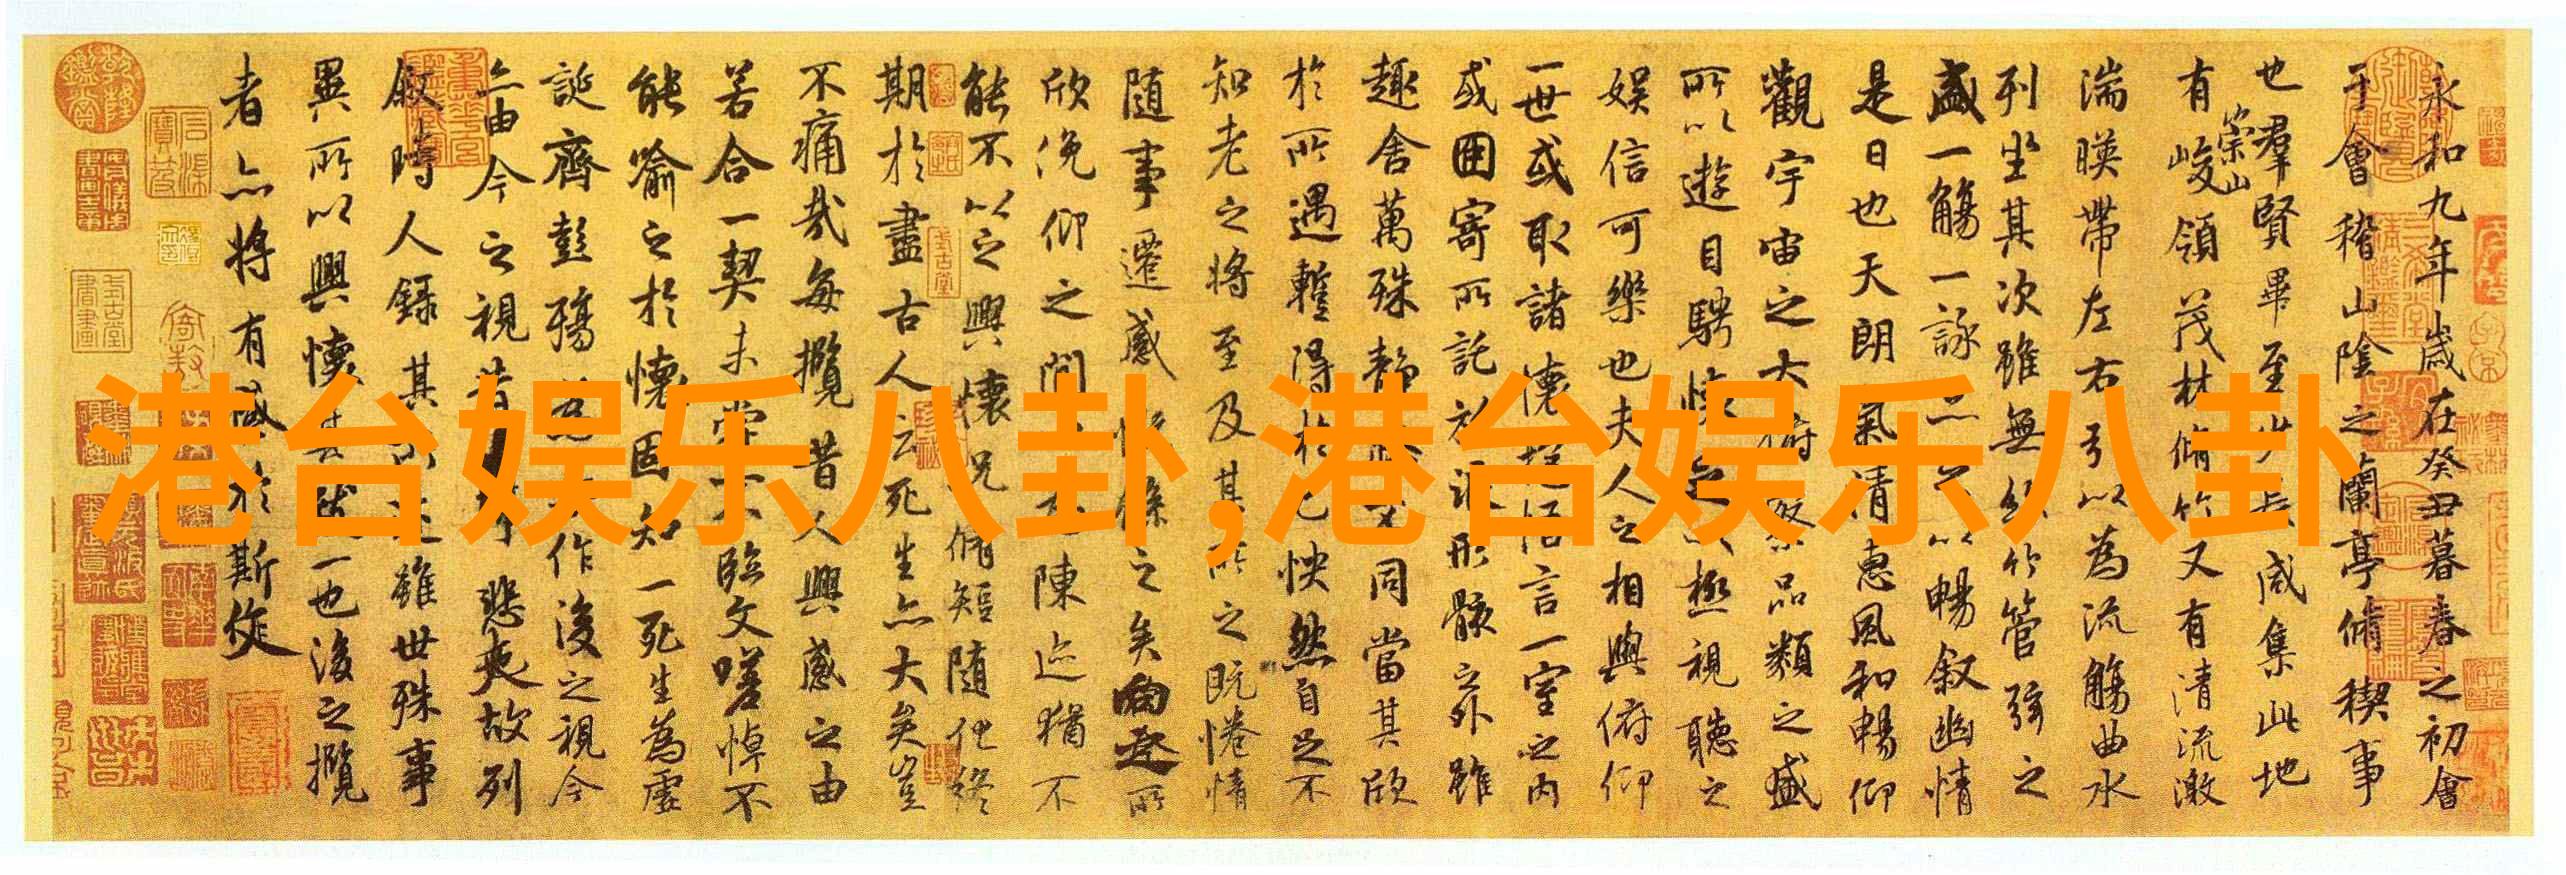 永和九年歲在癸丑暮春之初會
于會稽山陰之蘭亭脩禊事
也羣賢畢至少長咸集此地
有崇山峻領茂林脩竹又有清流激
湍暎帶左右引以為流觴曲水
列坐其次雖無絲竹管弦之
盛一觴一詠亦足以暢叙幽情
是日也天朗氣清惠風和暢仰
觀宇宙之大俯察品類之盛
所以遊目騁懷足以極視聽之
娛信可樂也夫人之相與俯仰
一世或取諸懷抱悟言一室之內
或因寄所託放浪形骸之外雖
趣舍萬殊靜躁不同當其欣
於所遇暫得於己怏然自足不
知老之將至及其所之既惓情
隨事遷感慨係之矣向之所
欣俛仰之間以為陳迹猶不
能不以之興懷況脩短隨化終
期於盡古人云死生亦大矣豈
不痛哉每攬昔人興感之由
若合一契未嘗不臨文嗟悼不
能喻之於懷固知一死生為虛
誕齊彭殤為妄作後之視今
亦由今之視昔悲夫故列
敘時人錄其所述雖世殊事
異所以興懷其致一也後之攬
者亦將有感於斯文
港台娱乐八卦,港台娱乐八卦